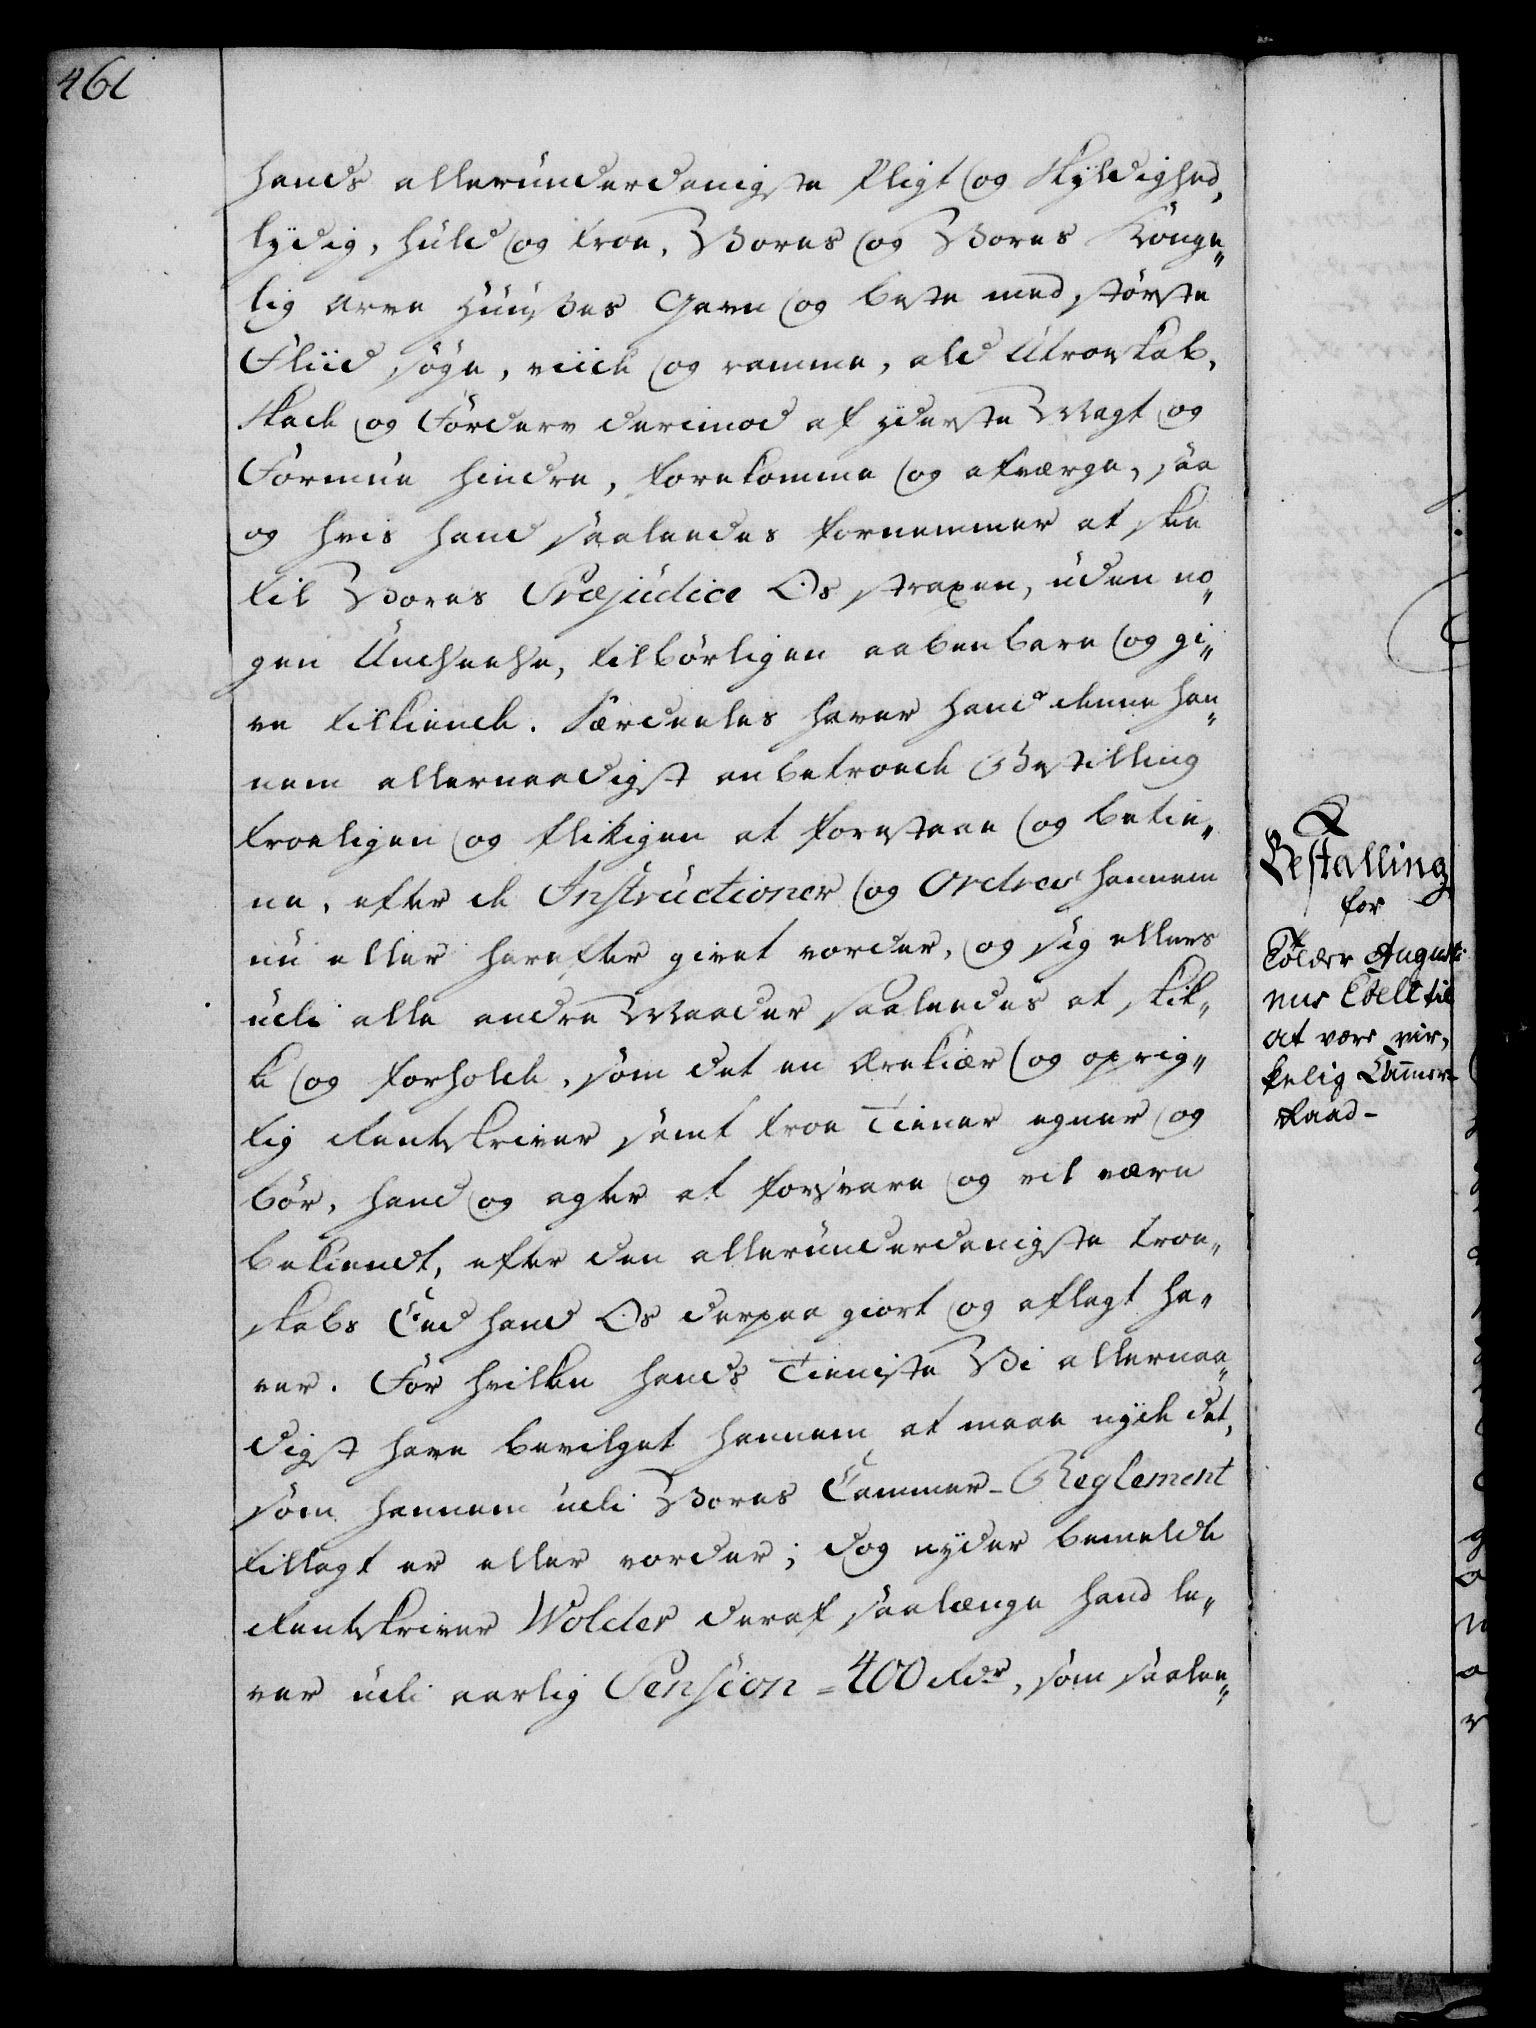 461
hands alleründerdanigste Pligt og Skyldighed,
lydig, huld og troe, Vores og Vores Konge„
lig Arve Huüses Gavn og beste med største
Fliid søge, viide og ramme, ald Utroeskab,
Skade og Fordærv derimod af yderste Magt og
Formue hindre, forekomme og afværge, saa
og hvis hand saaledes fornemmer at skee
til Vores Præjudice Os straxen, uden no„
gen Undseelse, tilbørligen aabenbare og gi„
ve tilkiende. Særdeeles haver hand denne han„
nem allernaadigst anbetroede Bestilling
troeligen og flitigen at forestaae og betie„
ne, efter de Instructioner og Ordres hannem
nu eller herefter givet vorder, og sig ellers
udi alle andre Maader saaledes at skik„
ke og forholde, som det en ærekiær og oprig„
tig Rentskriver samt troe Tiener egner og
bør, hand og agter at forsvare og vil være
bekiendt, efter den allerunderdanigste Troe„
skabs Eed hand Os derpaa giort og aflagt ha„
ver. For hvilken hands Tieniste Vi allernaa„
digst have bevilget hannem at maae nyde det,
som hannem udi Vores Cammer-Reglement
tillagt er eller vorder; dog nyder bemeldte
Rentskriver Wolder deraf saalænge hand le„
ver udi aarlig Pension = 400 Rdr, som saalee„
Bestalling
for
Tolder Augusti
nus Ebell til
at være vir„
kelig Cammer-
Raad-